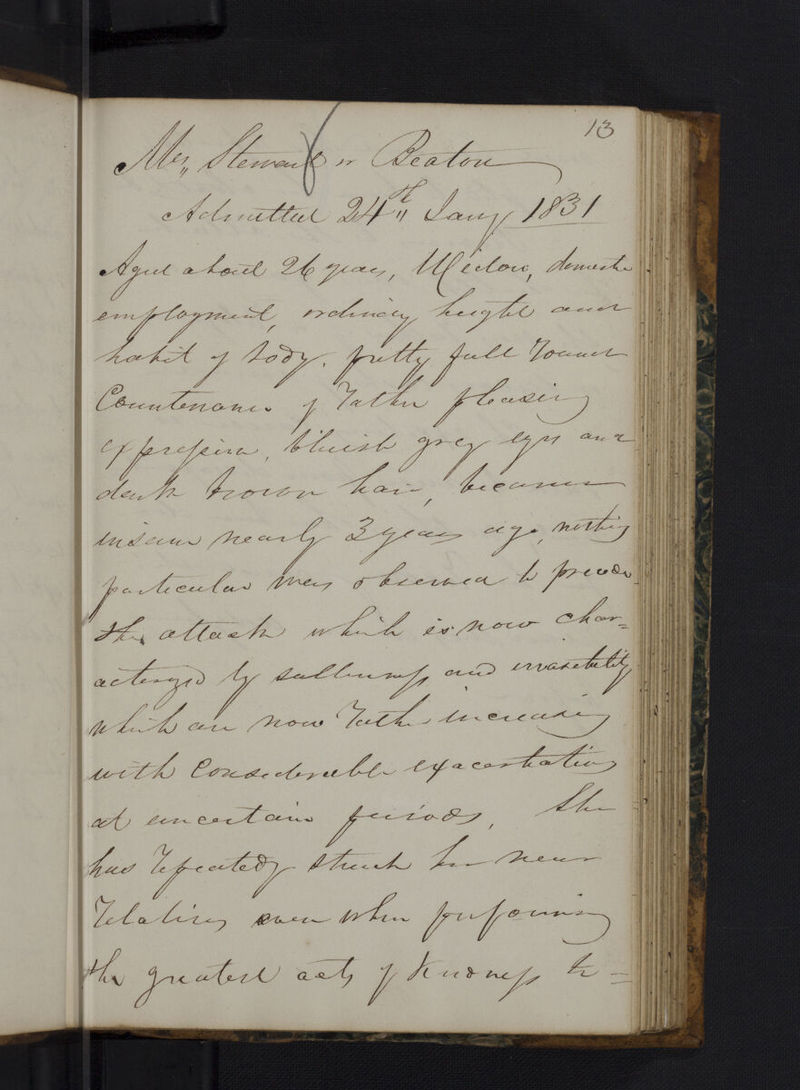 13
Mrs Stewart or Beaton
Admitted 24th Jany 1831
Aged about 26 years, Widow, domestic
employment, ordinary height and
habit of body. pretty full round
Countenance of rather pleasing
expression, bluish grey eyes and
dark brown hair, became
insane nearly 3 years ago, nothing
particular was observed to precede
the attack which is now char=
acterized by sullenness and irrascibility
which are now rather increasing
with Considerable exacerbations
at uncertain periods, She
has repeatedly struck her near
relatives even when performing
the greatest acts of kindness to=